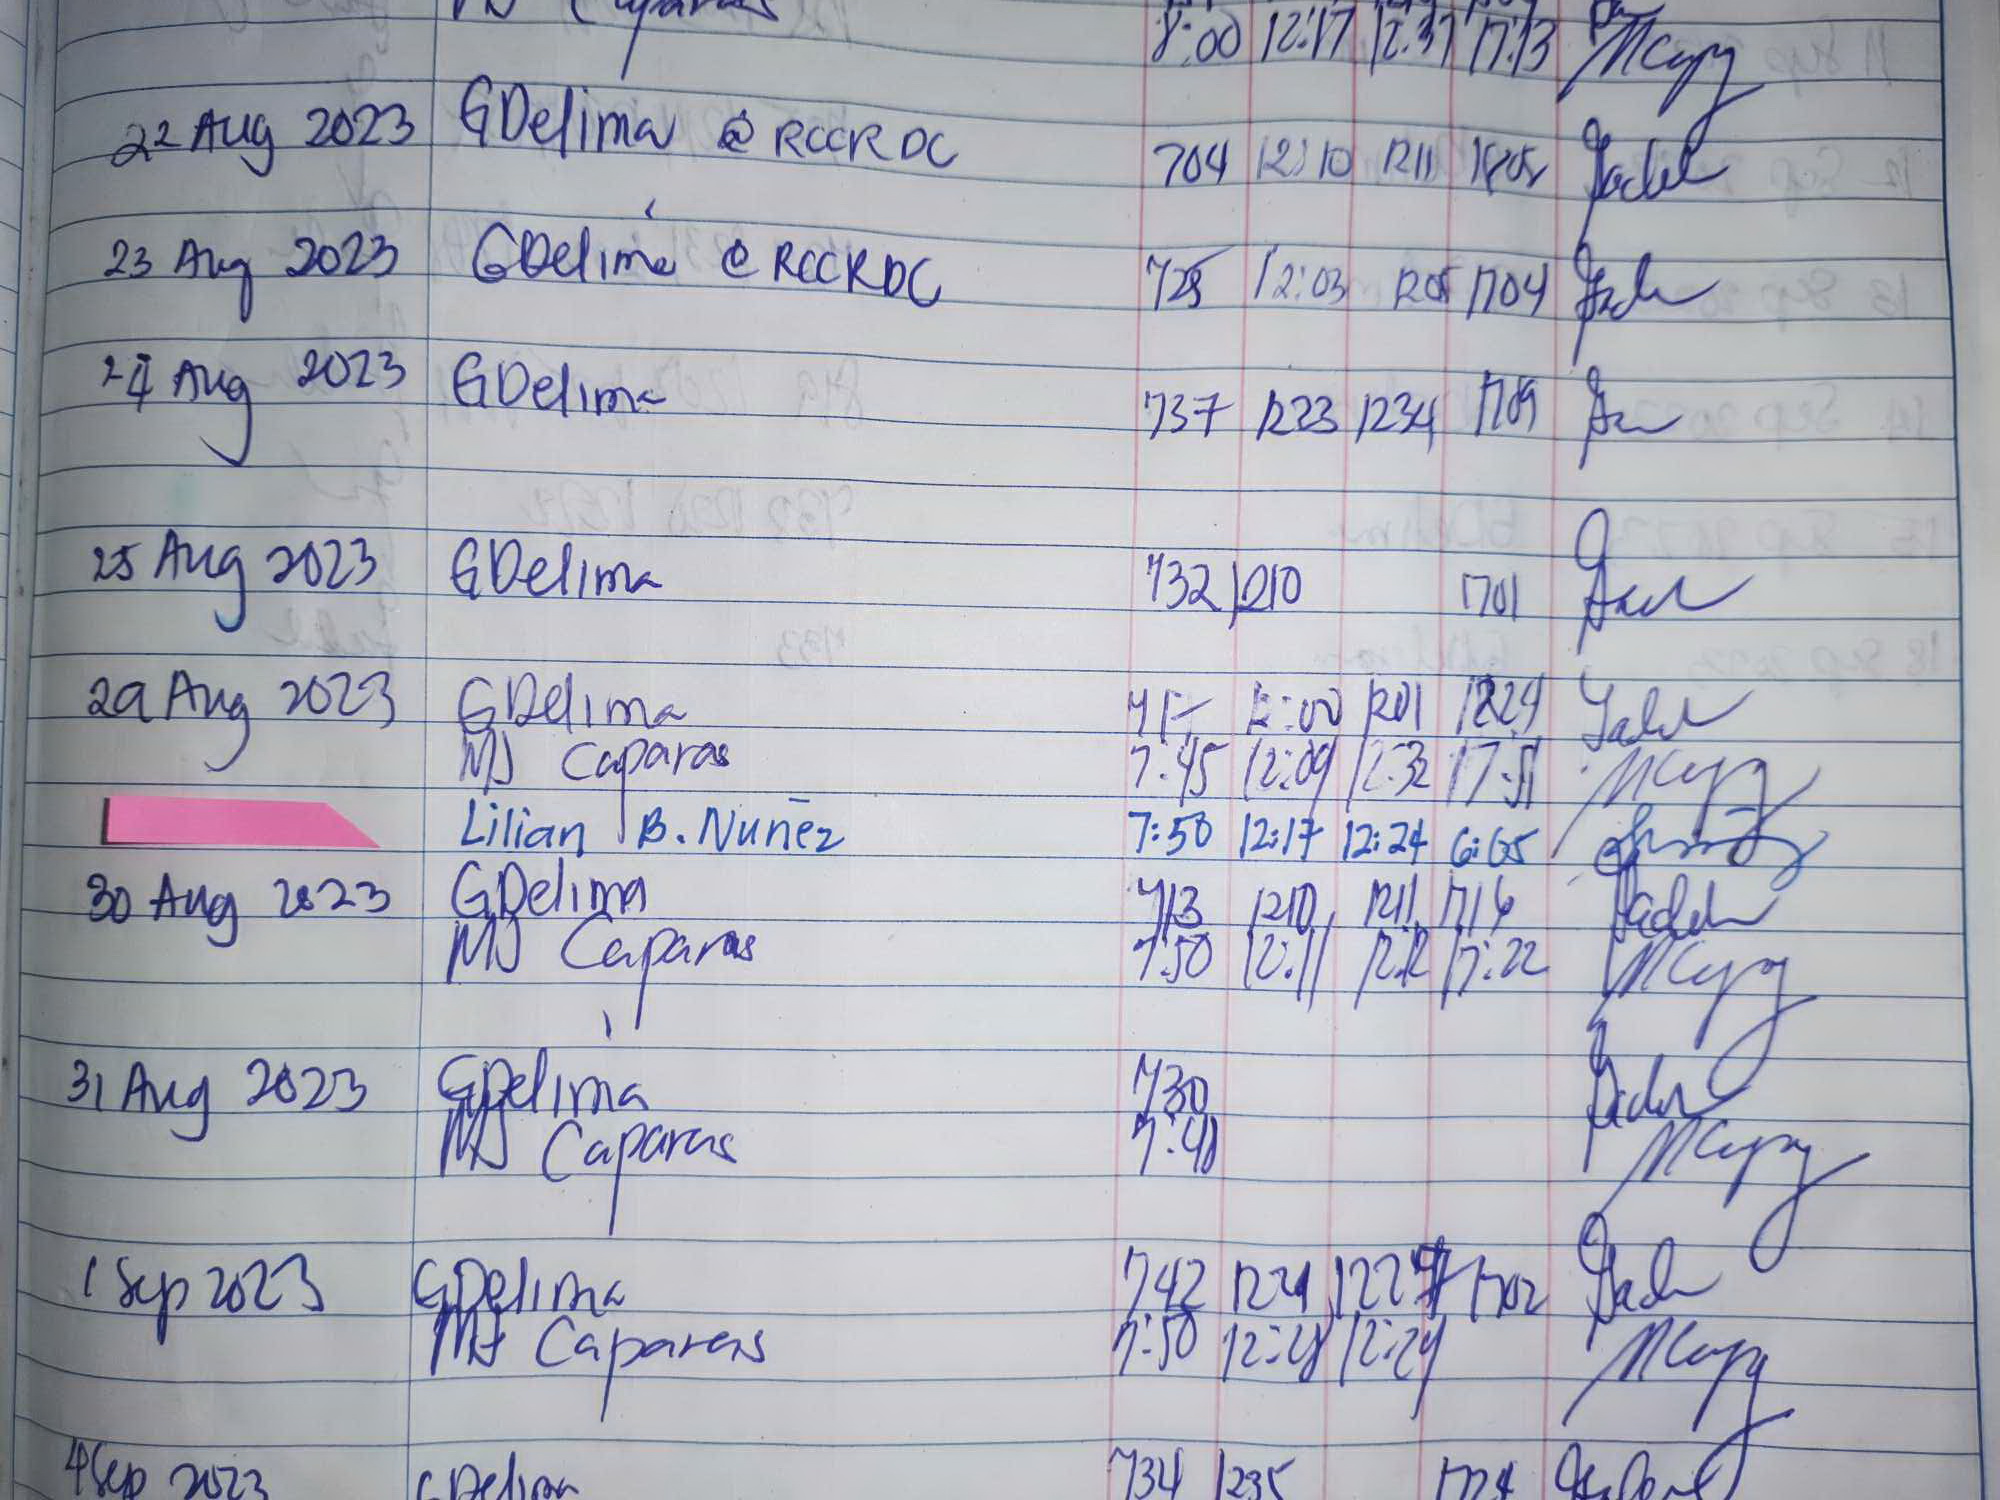 Caparas 8:00 12:17 12:37 17:13
22 Aug 2023 GDelima @ RCCRDC 704 12:10 1211 1805
23 Aug 2023 GDelima @ RCCRDC 725 12:03 1205 1704
24 Aug 2023 GDelima 737 1223 1234 1709
25 Aug 2023 GDelima 732 1210 1701
29 Aug 2023 GDelima 12:00 1201
MJ Caparas 7:45 12:09 12:32 17:51
Lilian B. Nuñez 7:50 12:17 12:24 6:05
30 Aug 2023 GDelima 713 1210 1211 1716
MJ Caparas 7:50 12:11 12:12 17:22
31 Aug 2023 GDelima 730
MJ Caparas 7:48
1 Sep 2023 GDelima 742 1224 1702
MJ Caparas 7:50 12:28 12:29
4 Sep 2023 GDelima 734 1235 1724